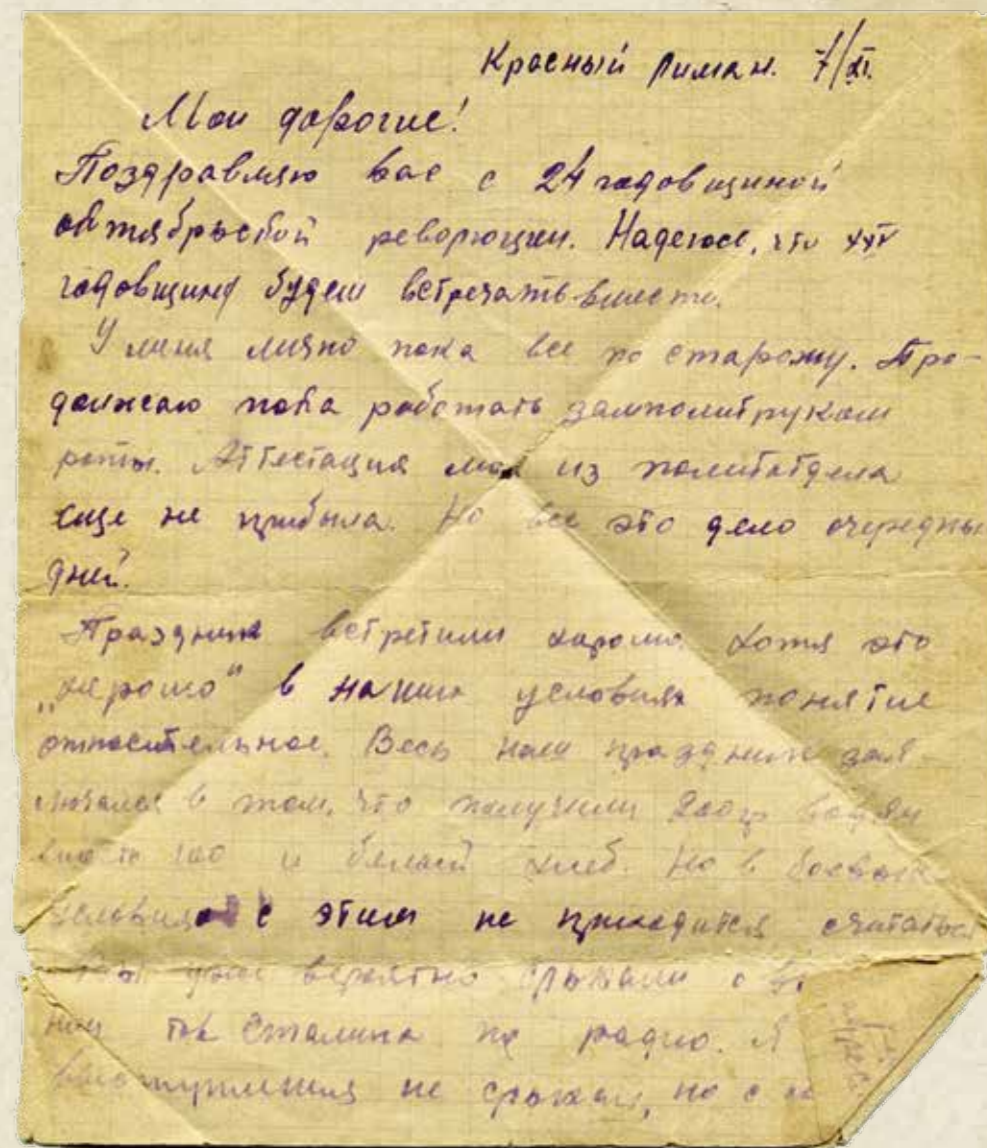 Красный Лиман. 7/XI.
Мои дорогие!
Поздравляю вас с 24 годовщиной
октябрьской революции. Надеюсь, что XXV
годовщину будем встречать вместе.
У меня лично пока все по старому. Про-
должаю пока работать замполитруком
роты. Аттестация моя из политотдела
еще не прибыла. Но все это дело очередных
дней.
Праздник встретили хорошо, хотя это
„хорошо“ в наших условиях понятие
относительное. Весь наш праздник зак-
лючался в том, что получили 200 гр водки
вместо 100 и белый хлеб. Но в боевых
условиях с этим не приходится считаться
Вы уже вероятно слыхали о
тов Сталина по радио. Я
выступления не слыхал, но с